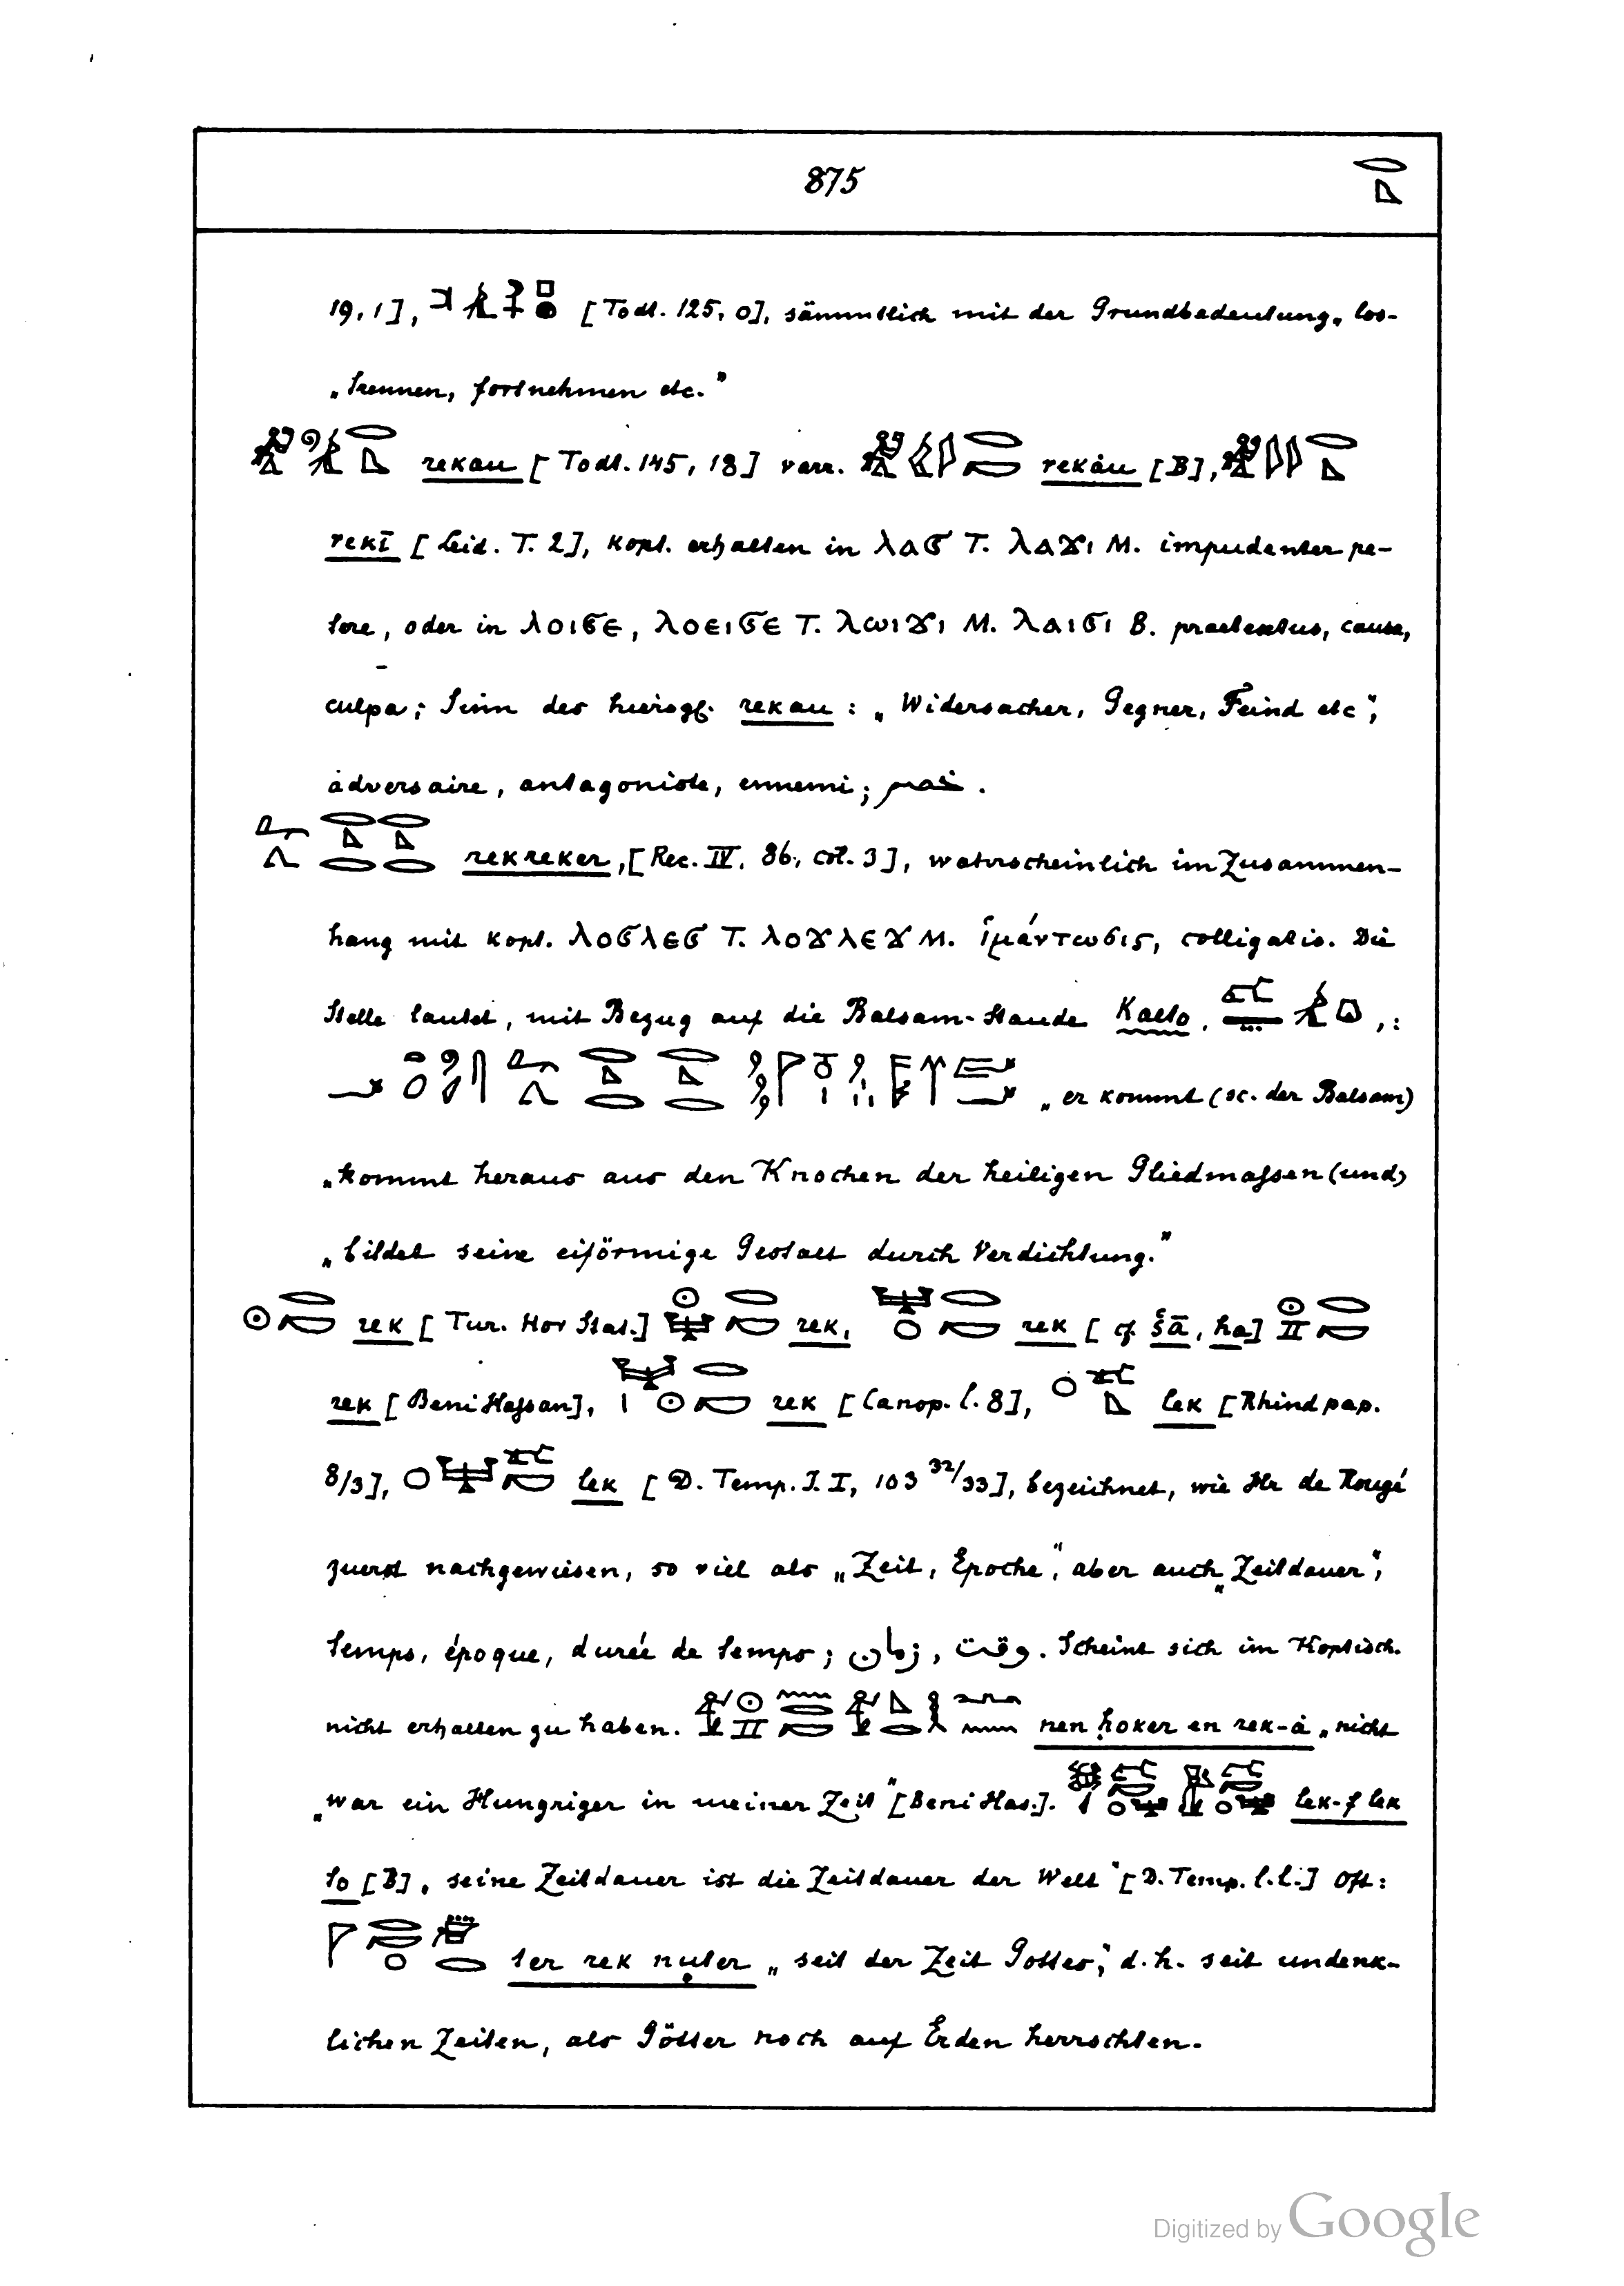 875
19,1], [Todt. 125, 0], sämmtlich mit der Grundbedeutung „los-
„trennen, fortnehmen etc.”
rekau [Todt. 145, 18] varr. rekȧu [B],
rekī [Leid. T. 2], Kopt. erhalten in ⲗⲁϭ T. ⲗⲁϫⲓ M. impudenter pe-
tere, oder in ⲗⲟⲓϭⲉ, ⲗⲟⲉⲓϭⲉ T. ⲗⲱⲓϫⲓ M. ⲗⲁⲓϭⲓ B. praetextus, causa,
culpa; Sinn des hierogl. rekau: „Widersacher, Gegner, Feind etc”,
adversaire, antagoniste, ennemi; خصم.
rekreker, [Rec. IV, 86, col. 3], wahrscheinlich im Zusammen-
hang mit Kopt. ⲗⲟϭⲗⲉϭ T. ⲗⲟϫⲗⲉϫ M. ἱμάντωσις, colligatio. Die
Stelle lautet, mit Bezug auf die Balsam-Staude Kato, :
„er kommt (sc. der Balsam)
„kommt heraus aus den Knochen der heiligen Gliedmaßen (und)
„bildet seine eiförmige Gestalt durch Verdichtung.”
rek [Tur. Hor Stat.] rek, rek [cf. šā, ha]
rek [Beni Haßan], rek [Canop. l. 8], lek [Rhind pap.
8/3], lek [D. Temp. I. I, 103 32/33], bezeichnet, wie Hr de Rougé
zuerst nachgewiesen, so viel als „Zeit, Epoche”, aber auch „Zeitdauer”,
temps, époque, durée de temps; وقت, زمان. Scheint sich im Koptisch.
nicht erhalten zu haben. nen ḥoker en rek-ȧ „nicht
„war ein Hungriger in meiner Zeit” [Beni Has.]. lek-f lek
to [B], seine Zeitdauer ist die Zeitdauer der Welt” [D. Temp. l. l.] Oft:
ter rek nuter „seit der Zeit Gottes”, d. h. seit undenk-
lichen Zeiten, als Götter noch auf Erden herrschten.
Digitized by Google